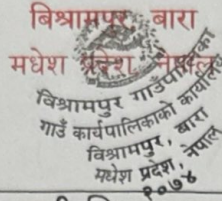 विश्रामपुर, बारा
मधेश प्रदेश, नेपाल
विश्रामपुर गाउँपालिका
गाउँ कार्यपालिकाको कार्यालय
विश्रामपुर, बारा
मधेश प्रदेश, नेपाल
२०७४